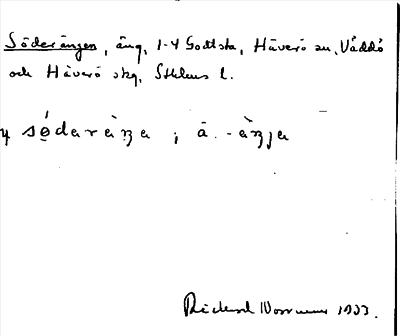 Söderängen, äng, 1-4 Gottsta, Häverö sn, Väddö
och Häverö skg, Sthlms l.
y sø̀daràŋa ; ä. -àŋja
Rickard Wornum 1933.